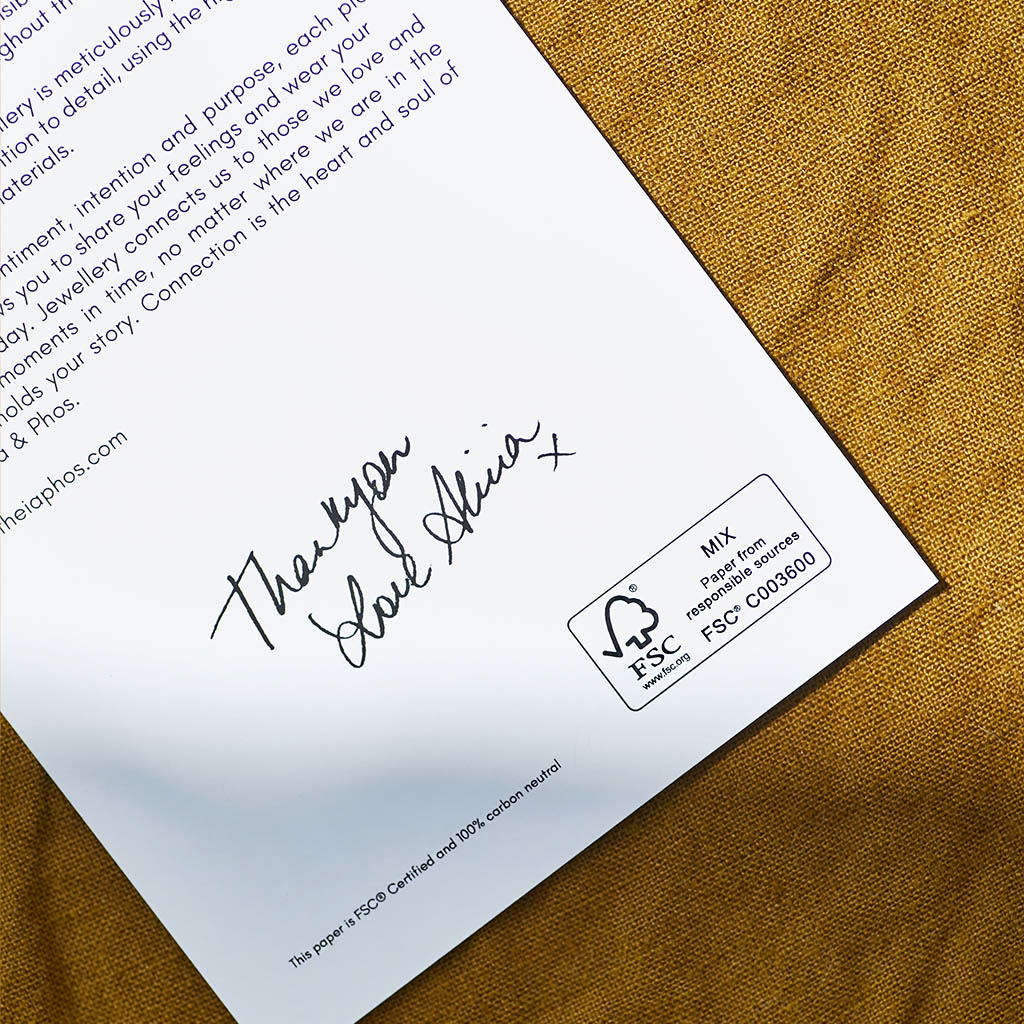 ghout th
llery is meticulously
ntion to detail, using the
aterials.
ntiment, intention and purpose, each
ws you to share your feelings and wear your
day. Jewellery connects us to those we love and
moments in time, no matter where we are in the
holds your story. Connection is the heart and soul of
a & Phos.
theiaphos.com
Thankyou
Love Alicia x
MIX
Paper from
responsible sources
FSC® C003600
FSC
www.fsc.org
This paper is FSC® Certified and 100% carbon neutral